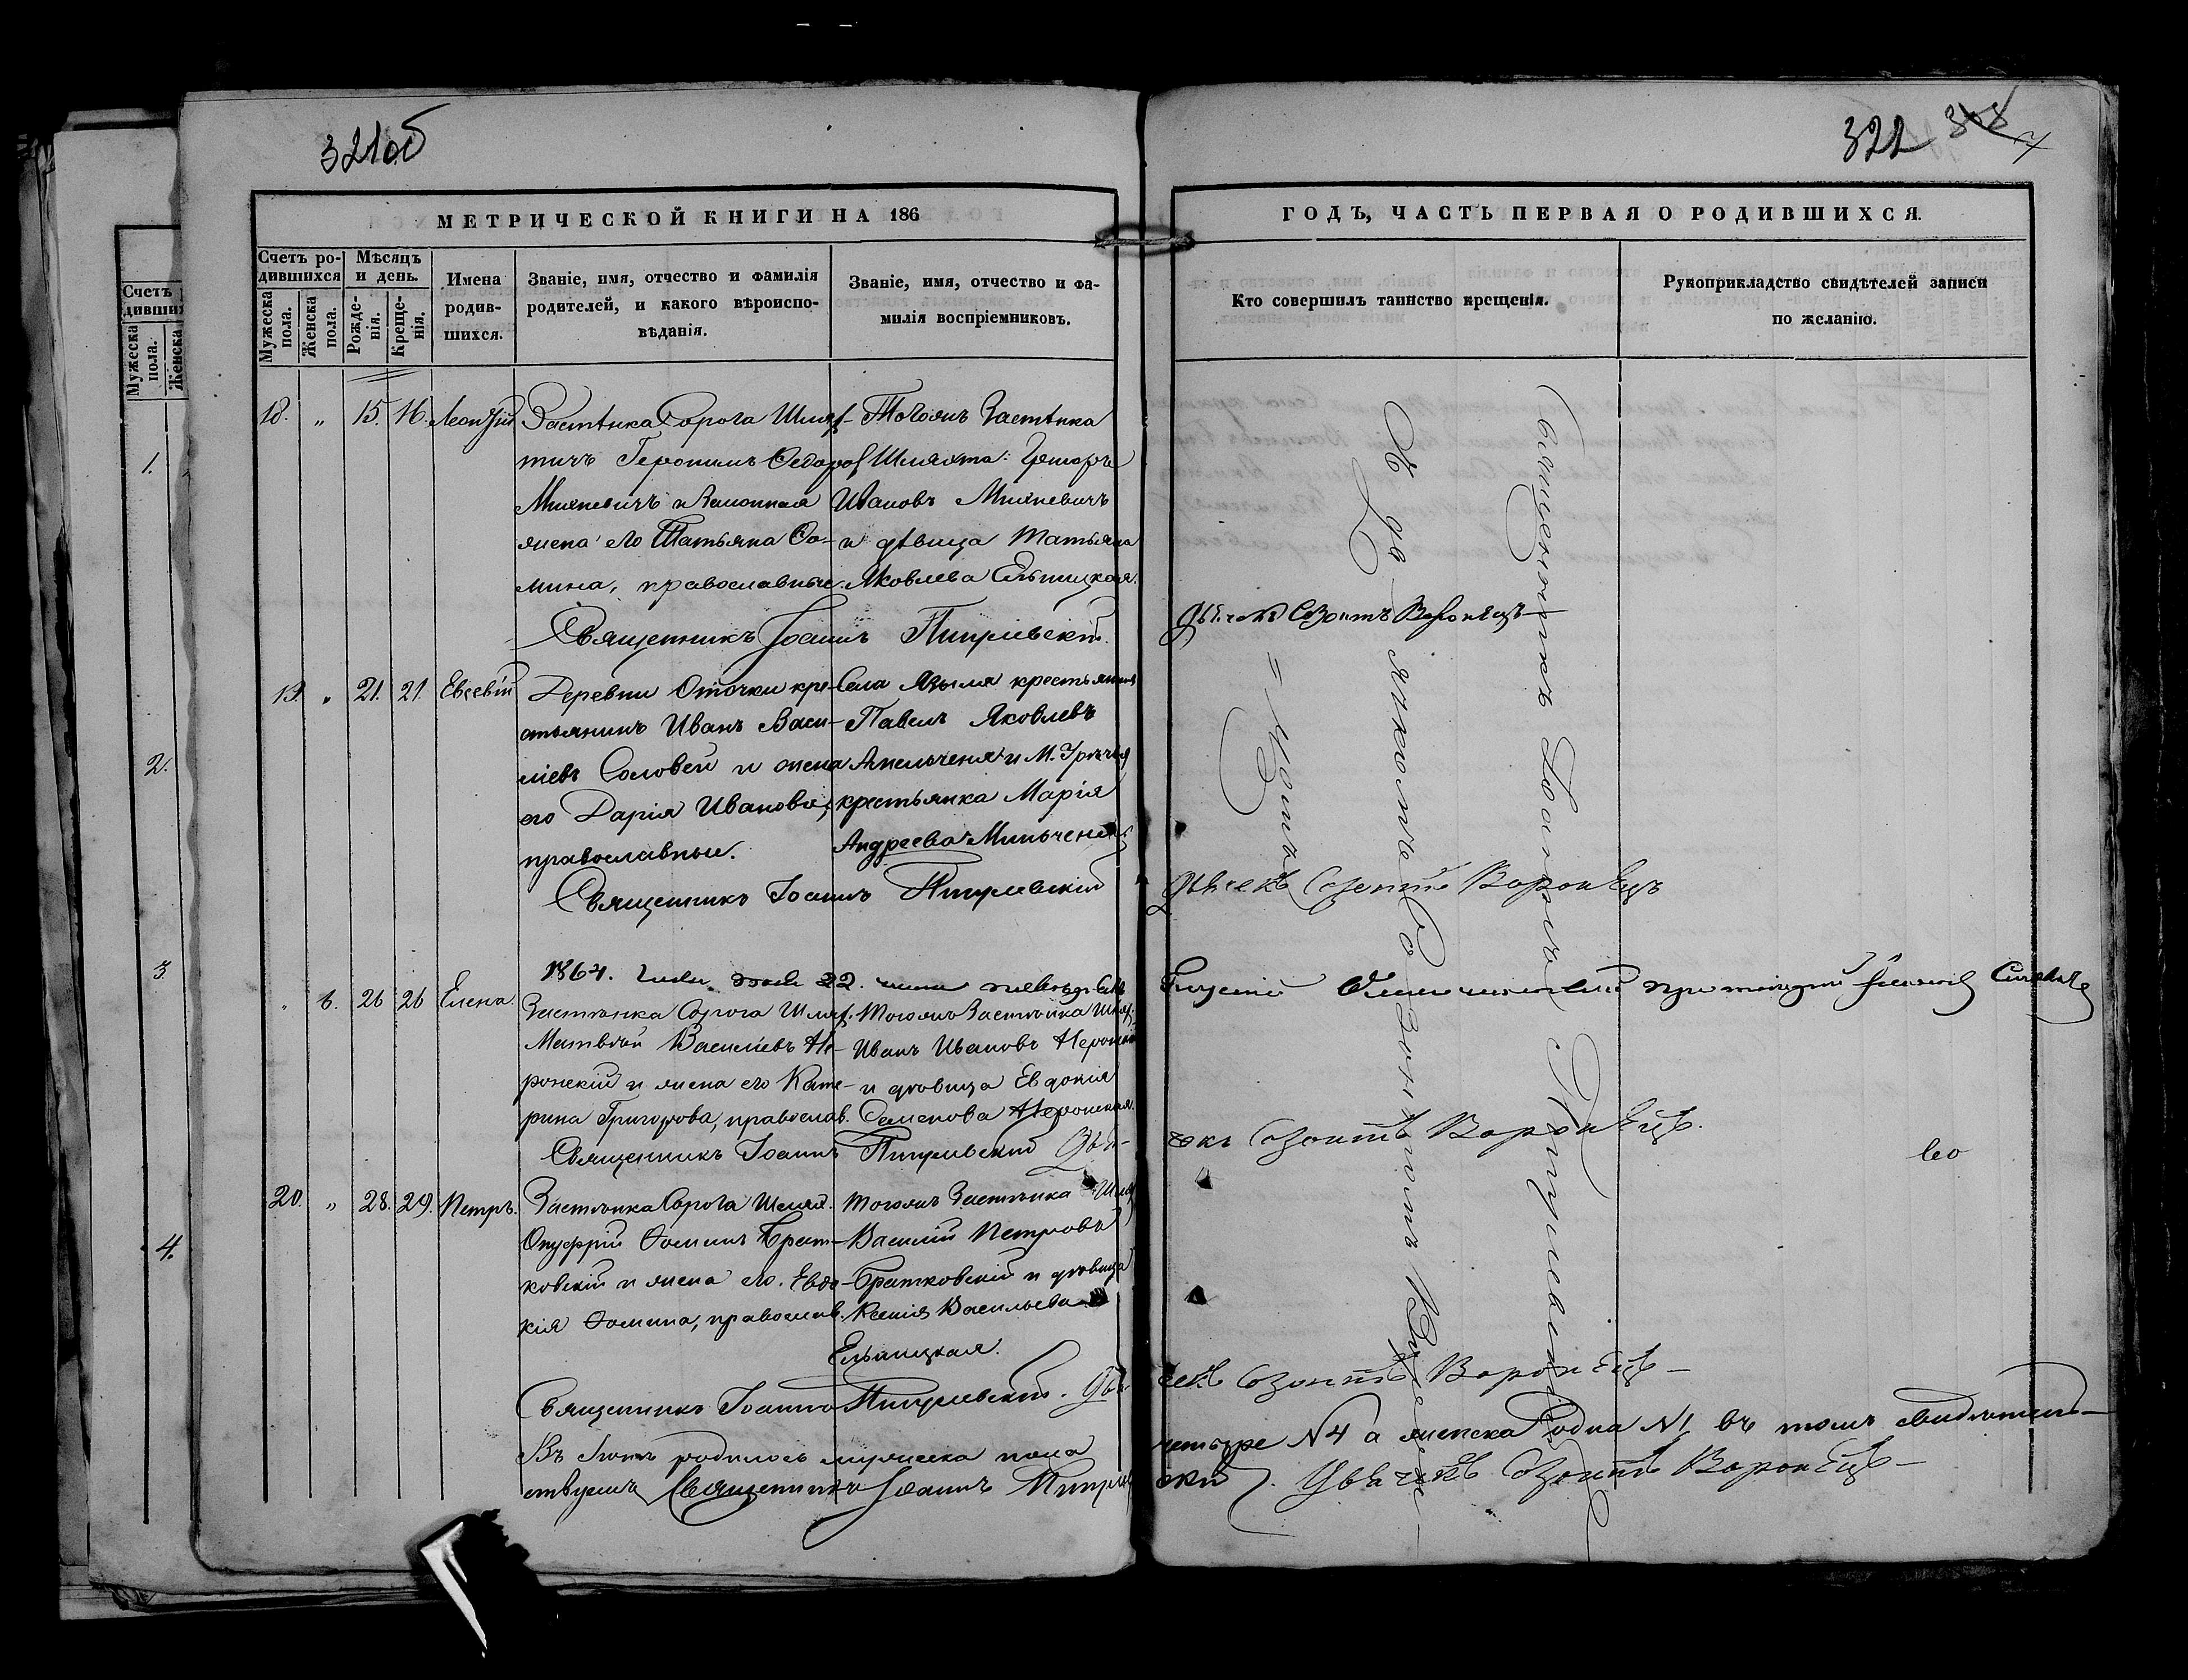 321об
322 308
МЕТРИЧЕСКОЙ КНИГИ НА 186
ГОДЪ, ЧАСТЬ ПЕРВАЯ О РОДИВШИХСЯ.
Счетъ ро-
дившихся
Мѣсяцъ
и день.
Мужеска
пола.
Женска
пола.
Рожде-
нія.
Креще-
нія.
Имена
родив-
шихся.
Званіе, имя, отчество и фамилія
родителей, и какого вѣроиспо-
вѣданія.
Званіе, имя, отчество и фа-
милія воспріемниковъ.
Кто совершилъ таинство крещенія.
Рукоприкладство свидѣтелей записи
по желанію.
Счетъ
дивши
Мужеска
пола.
Женска
1.
2.
3.
4.
18. „ 15. 16. Леонтій
Застѣнка Сорога Шлях-
тичъ Іеронимъ Ѳедоров
Мияневичъ и законная
жена его Татьяна Ѳо-
мина, православные.
Тогожъ Застѣнка
Шляхта: Григорій
Ивановъ Мияневичъ
и дѣвица Татьяна
Яковлева Ельницкая.
Священникъ Іоаннъ
Дьячекъ Созонтъ Воронецъ
19. „ 21. 21. Евсевій
Деревни Оточки кре-
стьянинъ Иванъ Васи-
ліевъ Соловей и жена
его Дарія Иванова,
православные.
Села Языля крестьянинъ
Павелъ Яковлевъ
Апельченя и М. Урѣчья
крестьянка Марія
Андреева Мильченя
Священникъ Іоаннъ
Дьячекъ Созонтъ Воронецъ
1864. 22.
„ 6. 26 26 Елена.
Застѣнка Сорога Шлях.
Матвѣй Василіевъ Не-
ронскій и жена его Кате-
рина Григорова, православ.
Тогожъ Застѣнка Шлях.
Иванъ Ивановъ Неронскій
и дѣвица Евдокія
Семенова Неронская.
Священникъ Іоаннъ Дья-
чекъ Созонтъ Воронецъ.
20. „ 28. 29. Петръ.
Застѣнка Сорога Шлях.
Онуфрій Ѳоминъ Брат-
ковскій и жена его Евдо-
кія Ѳомина, православ.
Тогожъ Застѣнка Шлях
Василій Петровъ
Братковскій и дѣвица
Ксенія Васильева
Ельницкая.
Священникъ Іоаннъ Дья-
чекъ Созонтъ Воронецъ
Въ Іюнѣ родилось мужеска пола
четыре №4 а женска одна №1 въ томъ свидѣтель-
ствуемъ Священникъ Іоаннъ
скій. Дьячекъ Созонтъ Воронецъ
Священникъ Іоаннъ
Дьячекъ Созонтъ Воронецъ